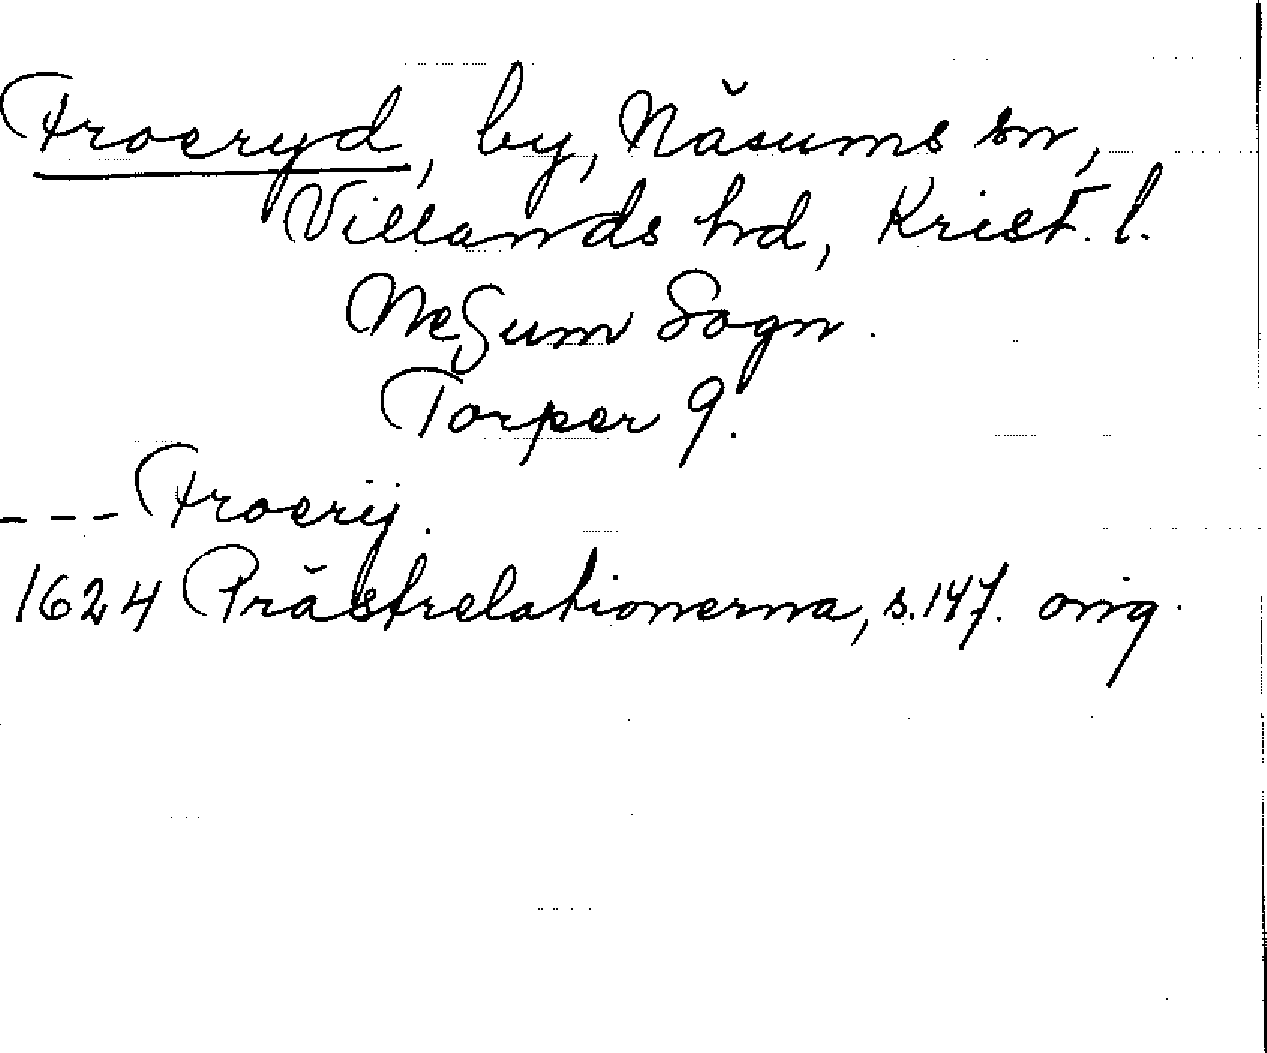 Froeryd, by, Näsums sn,
Villands hd, Krist. l.
Nesum Sogn.
Torper 9.
--- Froerÿ.
1624 Prästrelationerna, s. 147. orig.